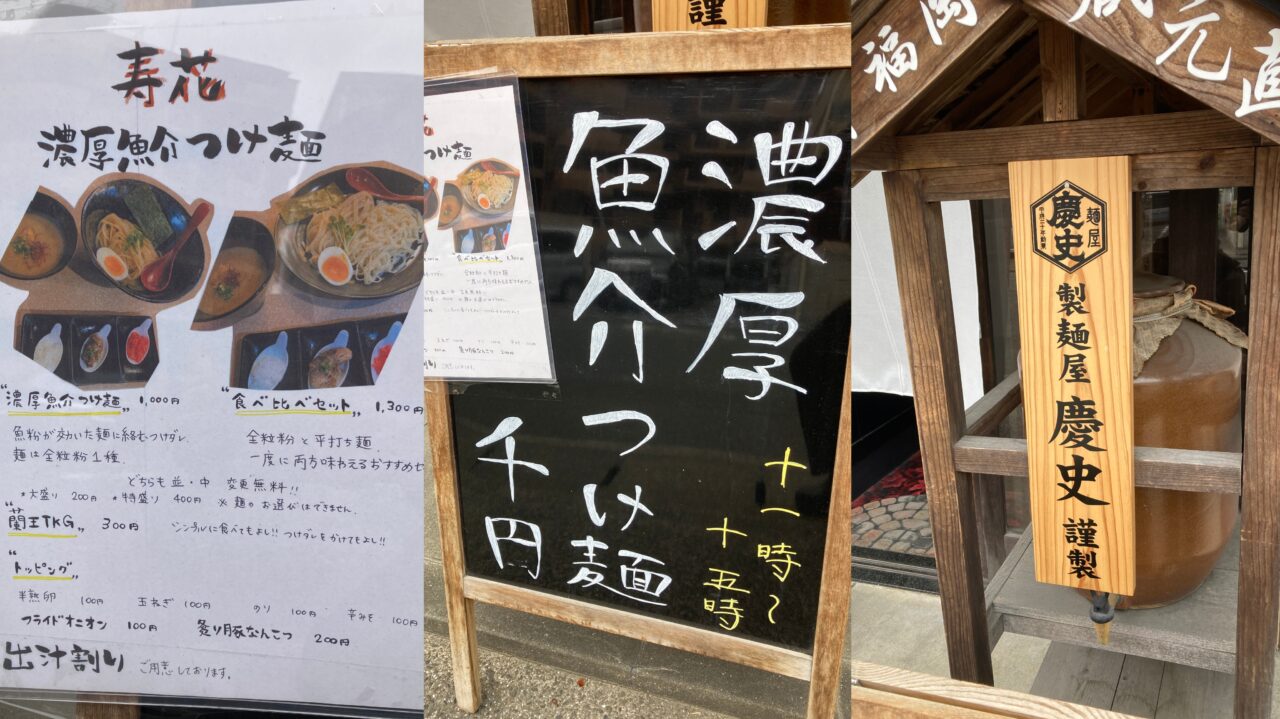 寿花
濃厚魚介つけ麺
"濃厚魚介つけ麺" 1,000円
魚粉が効いた麺に絡むつけダレ.
麺は全粒粉1種.
"食べ比べセット" 1,300円
全粒粉と平打ち麺
一度に両方味わえるおすすめセ
どちらも並・中 変更無料!!
*大盛り 200円 *特盛り 400円 ※麺のお選びはできません.
TKG" 300円 シンプルに食べてもよし!!つけダレをかけてもよし!!
"トッピング"
半熟卵 100円 玉ねぎ 100円 のり 100円 辛みそ 100円
フライドオニオン 100円 炙り豚なんこつ 200円
出汁割り ご用意しております。
謹
花
つけ麺
食べ比べセット
全粒粉と平打ち麺
濃厚
魚介つけ麺
千円
十一時~
十五時
福岡
蔵元直
麺屋
慶史
製麺屋慶史謹製